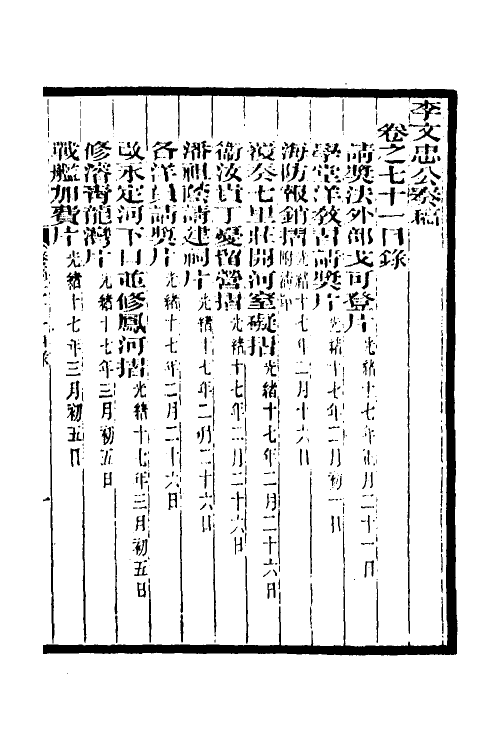 李文忠公奏稿
卷之七十一目錄
請獎法外部戈可登片 光緒十七年正月二十一日
學堂洋教習請獎片 光緒十七年二月初一日
海防報銷摺 附清單 光緒十七年二月十六日
覆奏七里莊開河窒礙摺 光緒十七年二月二十六日
衞汝貴丁憂留營摺 光緒十七年二月二十六日
潘祖蔭請建祠片 光緒十七年二月二十六日
各洋員請獎片 光緒十七年二月二十六日
改永定河下口並修鳳河摺 光緒十七年三月初五日
修濬青龍灣片 光緒十七年三月初五日
戰艦加費片 光緒十七年三月初五日